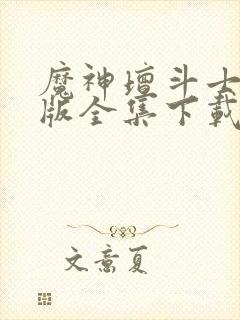 魔神壇斗士
版全集下載
文意夏